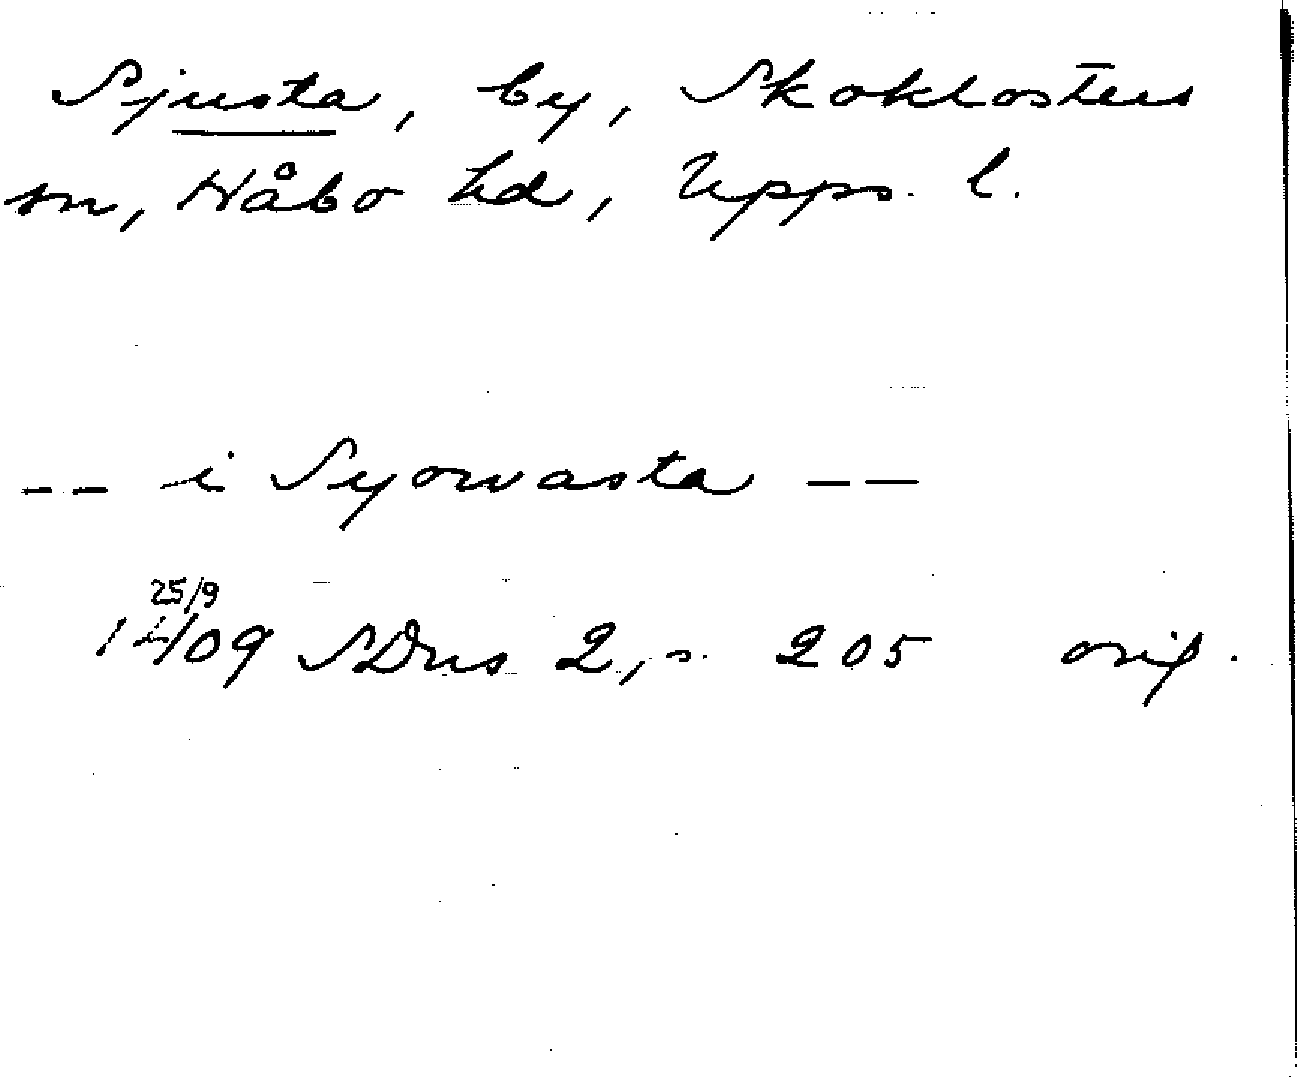 Sjusta, by, Skoklosters
sn, Håbo hd, Upps. l.
-- i Syowasta --
25/9
1409 SDns 2, s. 205 orig.